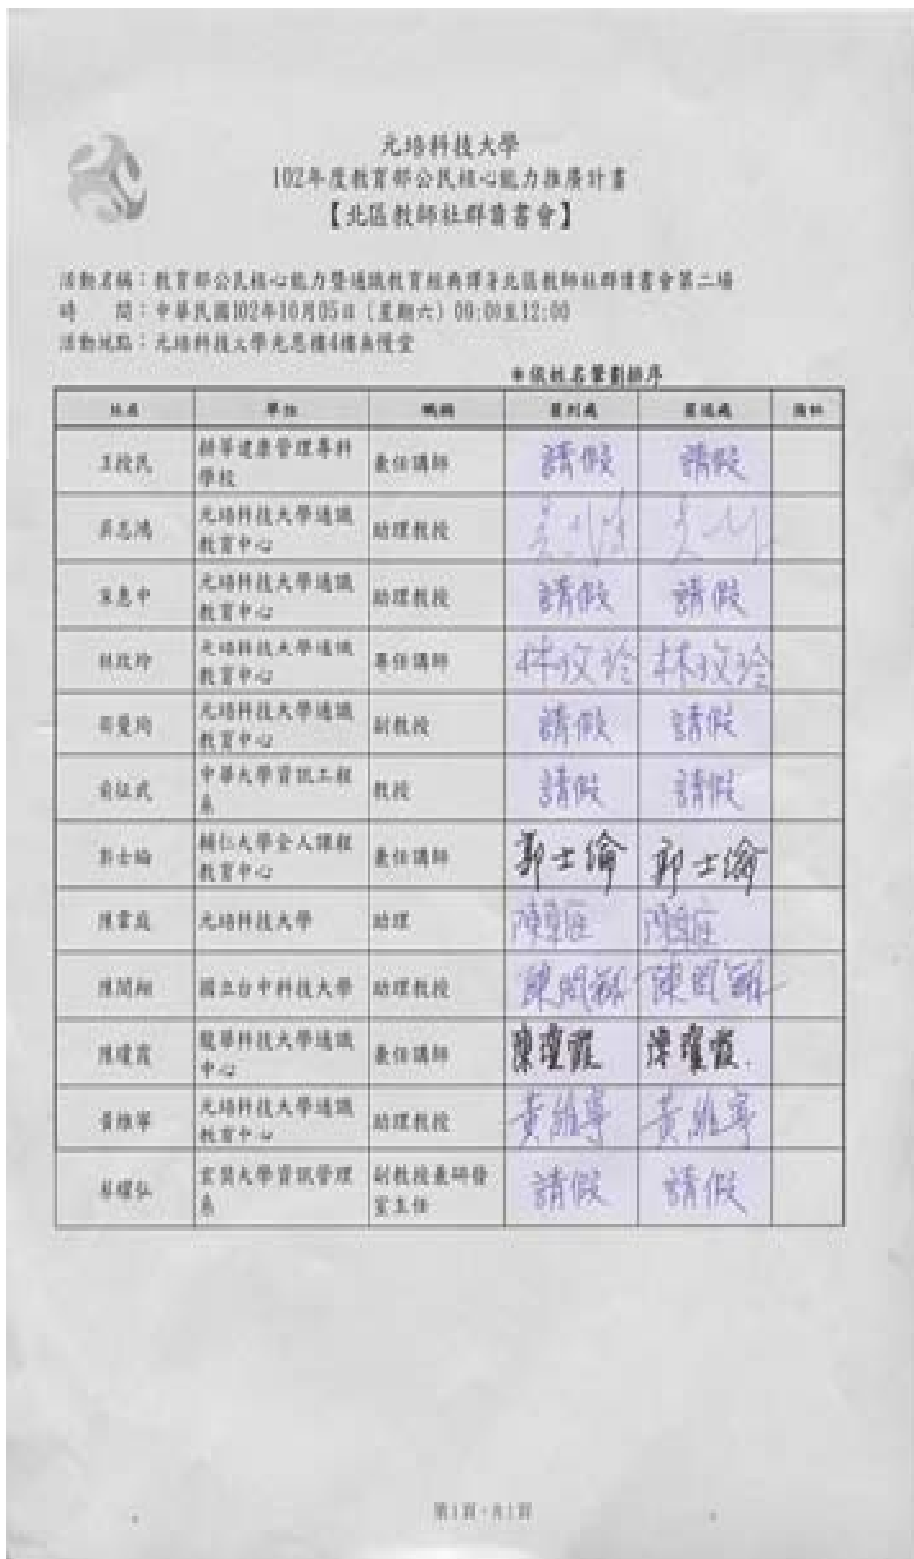 元培科技大學
102年度教育部公民核心能力推廣計畫
【北區教師社群讀書會】
活動名稱：教育部公民核心能力暨通識教育經典譯著北區教師社群讀書會第二場
時 間：中華民國102年10月05日（星期六）09:00至12:00
活動地點：元培科技大學光恩樓4樓無慢堂
※依姓名筆劃排序
姓名 單位 職稱 簽到處 簽退處 備註
耕莘健康管理專科
學校
兼任講師 請假 請假
吳志鴻 元培科技大學通識
教育中心
助理教授
惠中 元培科技大學通識
教育中心
助理教授 請假 請假
林玫玲 元培科技大學通識
教育中心
專任講師 林玫玲 林玫玲
曼均 元培科技大學通識
教育中心
副教授 請假 請假
俞征武 中華大學資訊工程
系
教授 請假 請假
郭士綸 輔仁大學全人課程
教育中心
兼任講師 郭士倫 郭士倫
陳 庭 元培科技大學 助理
陳閔翔 國立台中科技大學 助理教授 陳閔翔 陳閔翔
陳瓊霞 龍華科技大學通識
中心
兼任講師 陳瓊霞 陳瓊霞
黃維寧 元培科技大學通識
教育中心
助理教授 黃維寧 黃維寧
耀弘 玄奘大學資訊管理
系
副教授兼研發
室主任
請假 請假
第1頁，共1頁